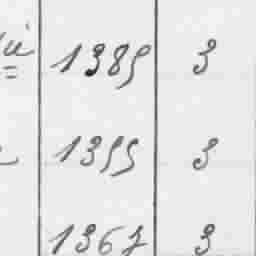 1385 3
1355 3
1367 3